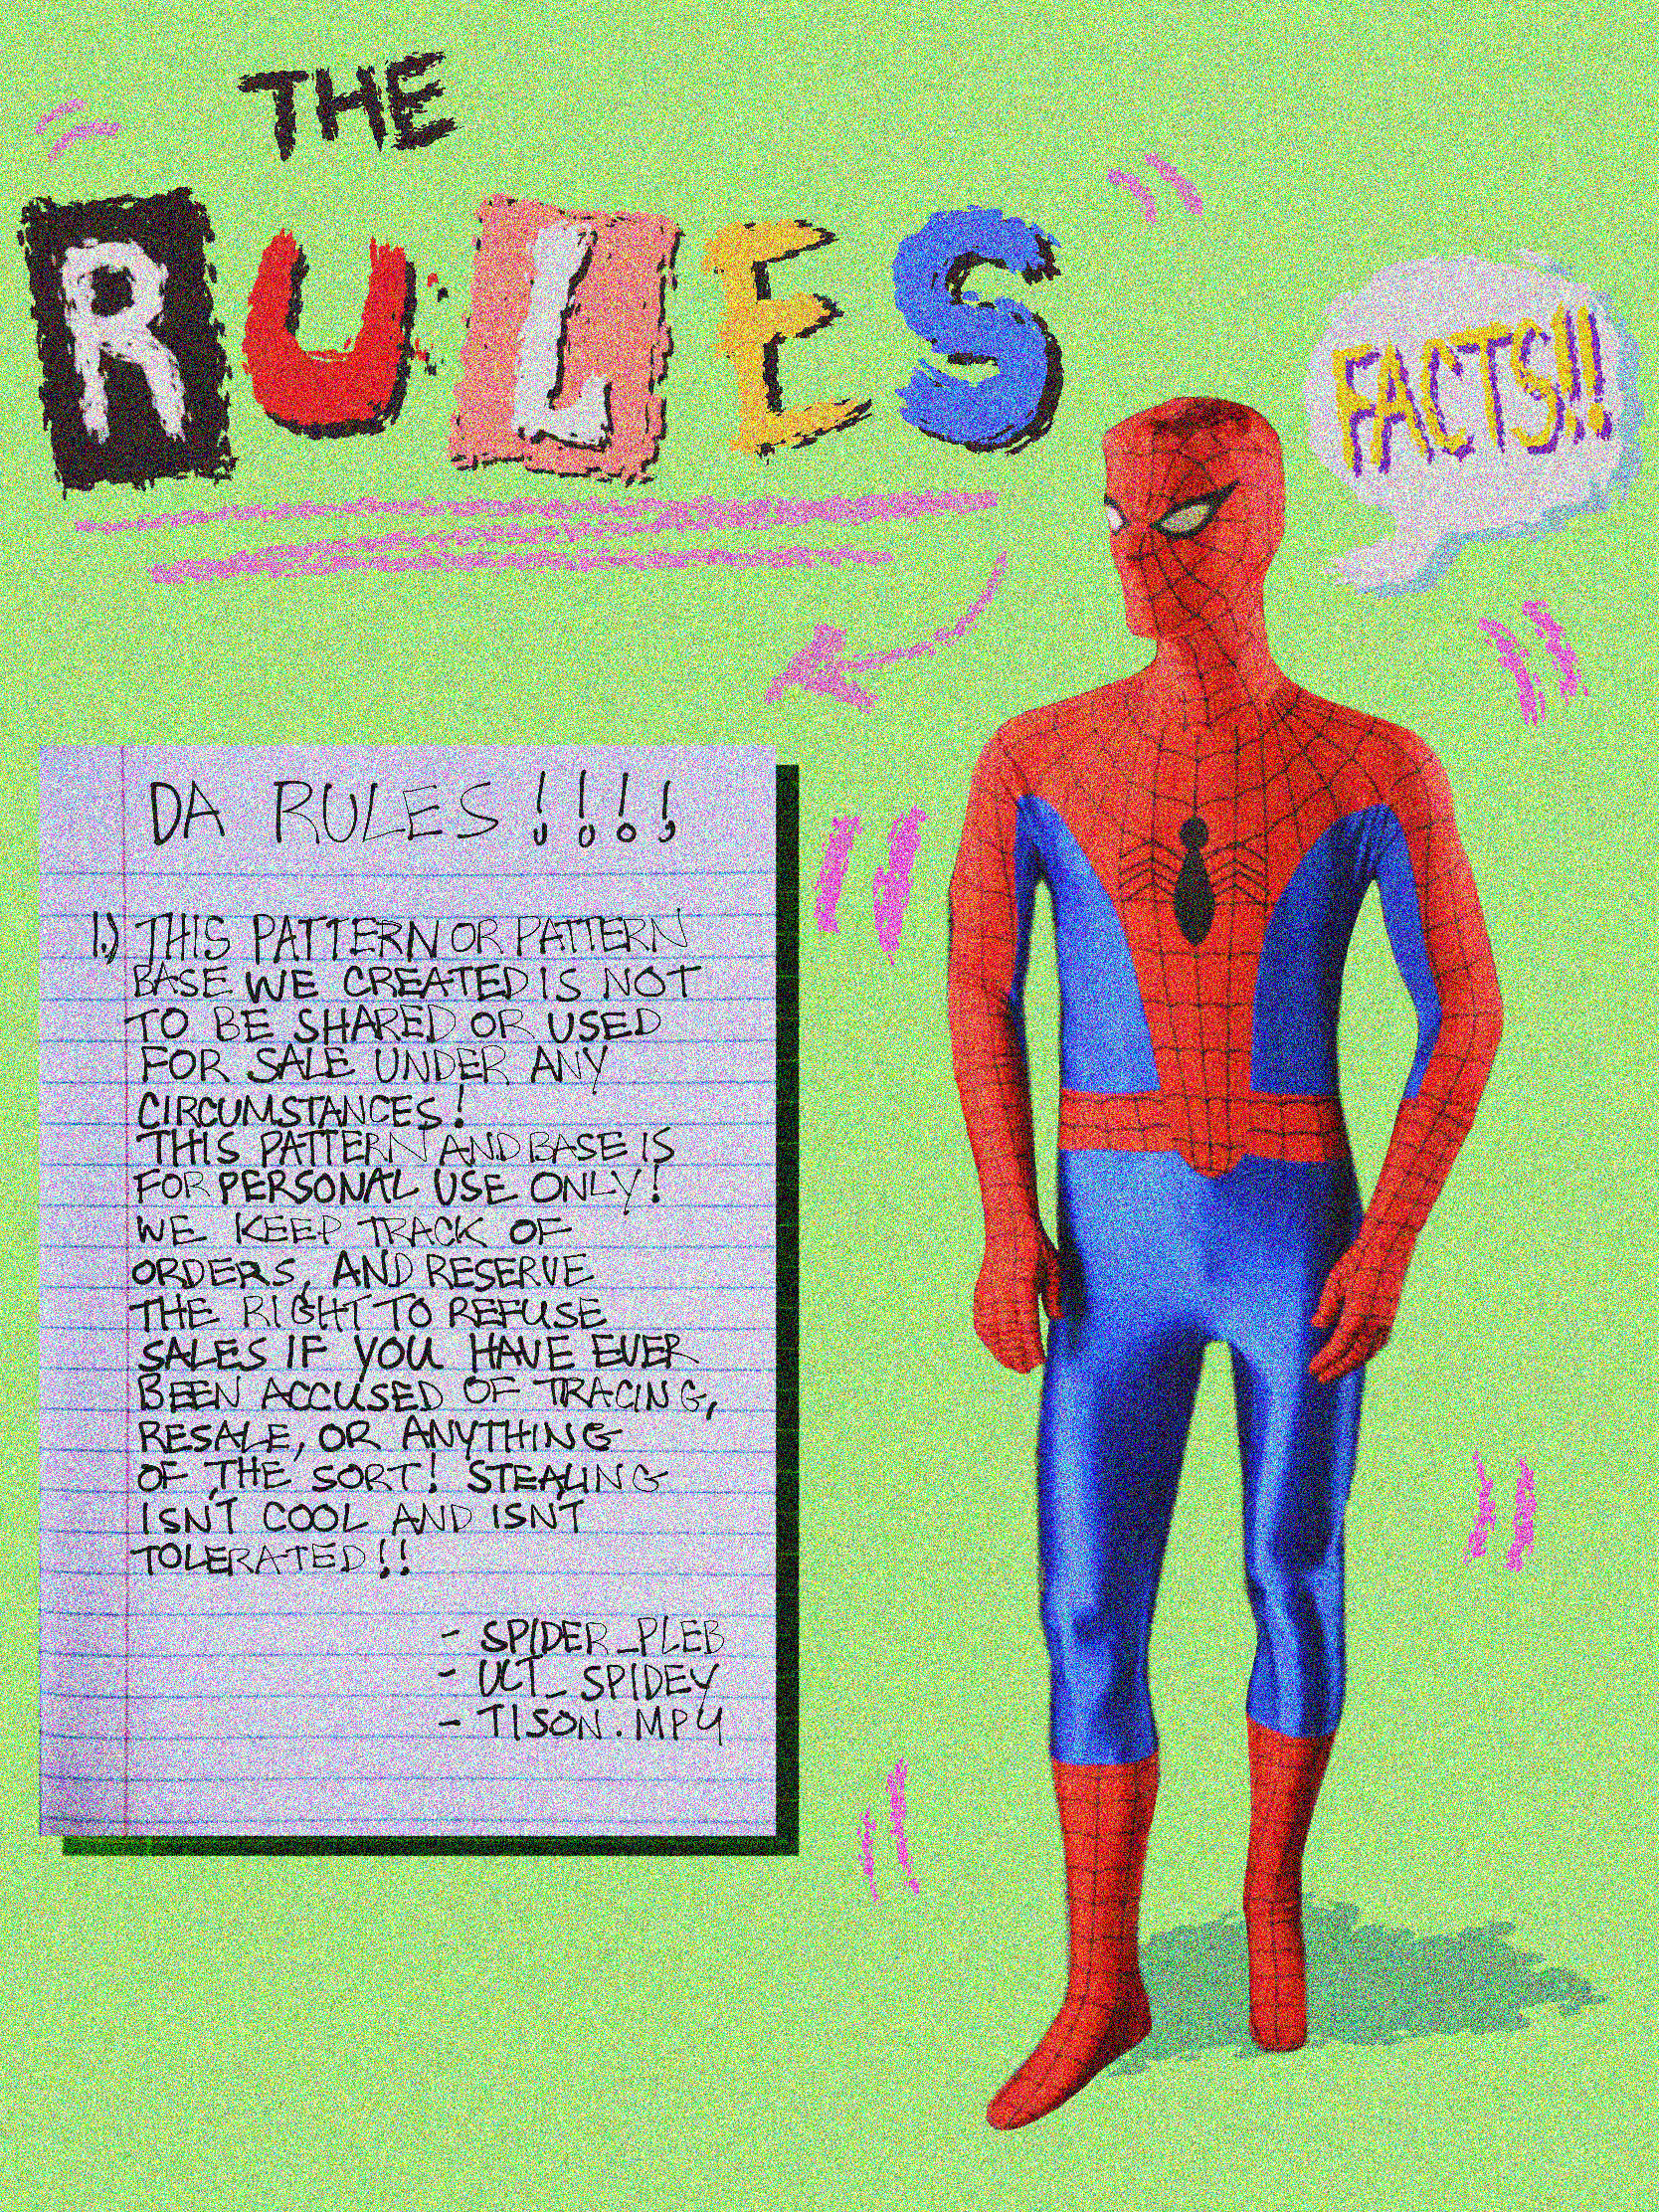 THE
RULES
FACTS!!
DA RULES!!!!
1.) THIS PATTERN OR PATTERN
BASE WE CREATED IS NOT
TO BE SHARED OR USED
FOR SALE UNDER ANY
CIRCUMSTANCES!
THIS PATTERN AND BASE IS
FOR PERSONAL USE ONLY!
WE KEEP TRACK OF
ORDERS, AND RESERVE
THE RIGHT TO REFUSE
SALES IF YOU HAVE EVER
BEEN ACCUSED OF TRACING,
RESALE, OR ANYTHING
OF THE SORT! STEALING
ISN'T COOL AND ISN'T
TOLERATED!!
- SPIDER_PLEB
- ULT_SPIDEY
- TISON.MP4